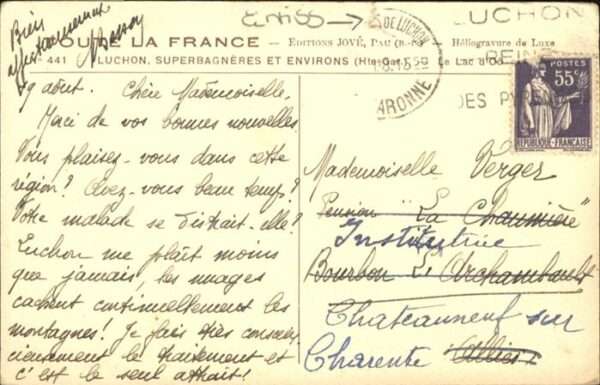 Bien
affectueusement
TOUTE LA FRANCE — EDITIONS JOVÉ, PAU (B.-P.) Héliogravure de Luxe
441 LUCHON, SUPERBAGNÈRES ET ENVIRONS (Hte-Gar.) Le Lac d'Oô
DE LUCHON
GARONNE
LUCHON
REINE
DES PY
POSTES
55c
REPUBLIQUE-FRANÇAISE
19 août. Chère Mademoiselle.
Merci de vos bonnes nouvelles.
Vous plaisez-vous dans cette
région? Avez-vous beau temps?
Votre malade se distrait-elle?
Luchon me plaît moins
que jamais, les nuages
cachent continuellement les
montagnes! Je fais très conscien-
cieusement le traitement et
c'est le seul attrait!
Mademoiselle Verger
Pension "La Chaumière"
Institutrice
Bourbon L'Archambault
Chateauneuf sur
Charente Allier